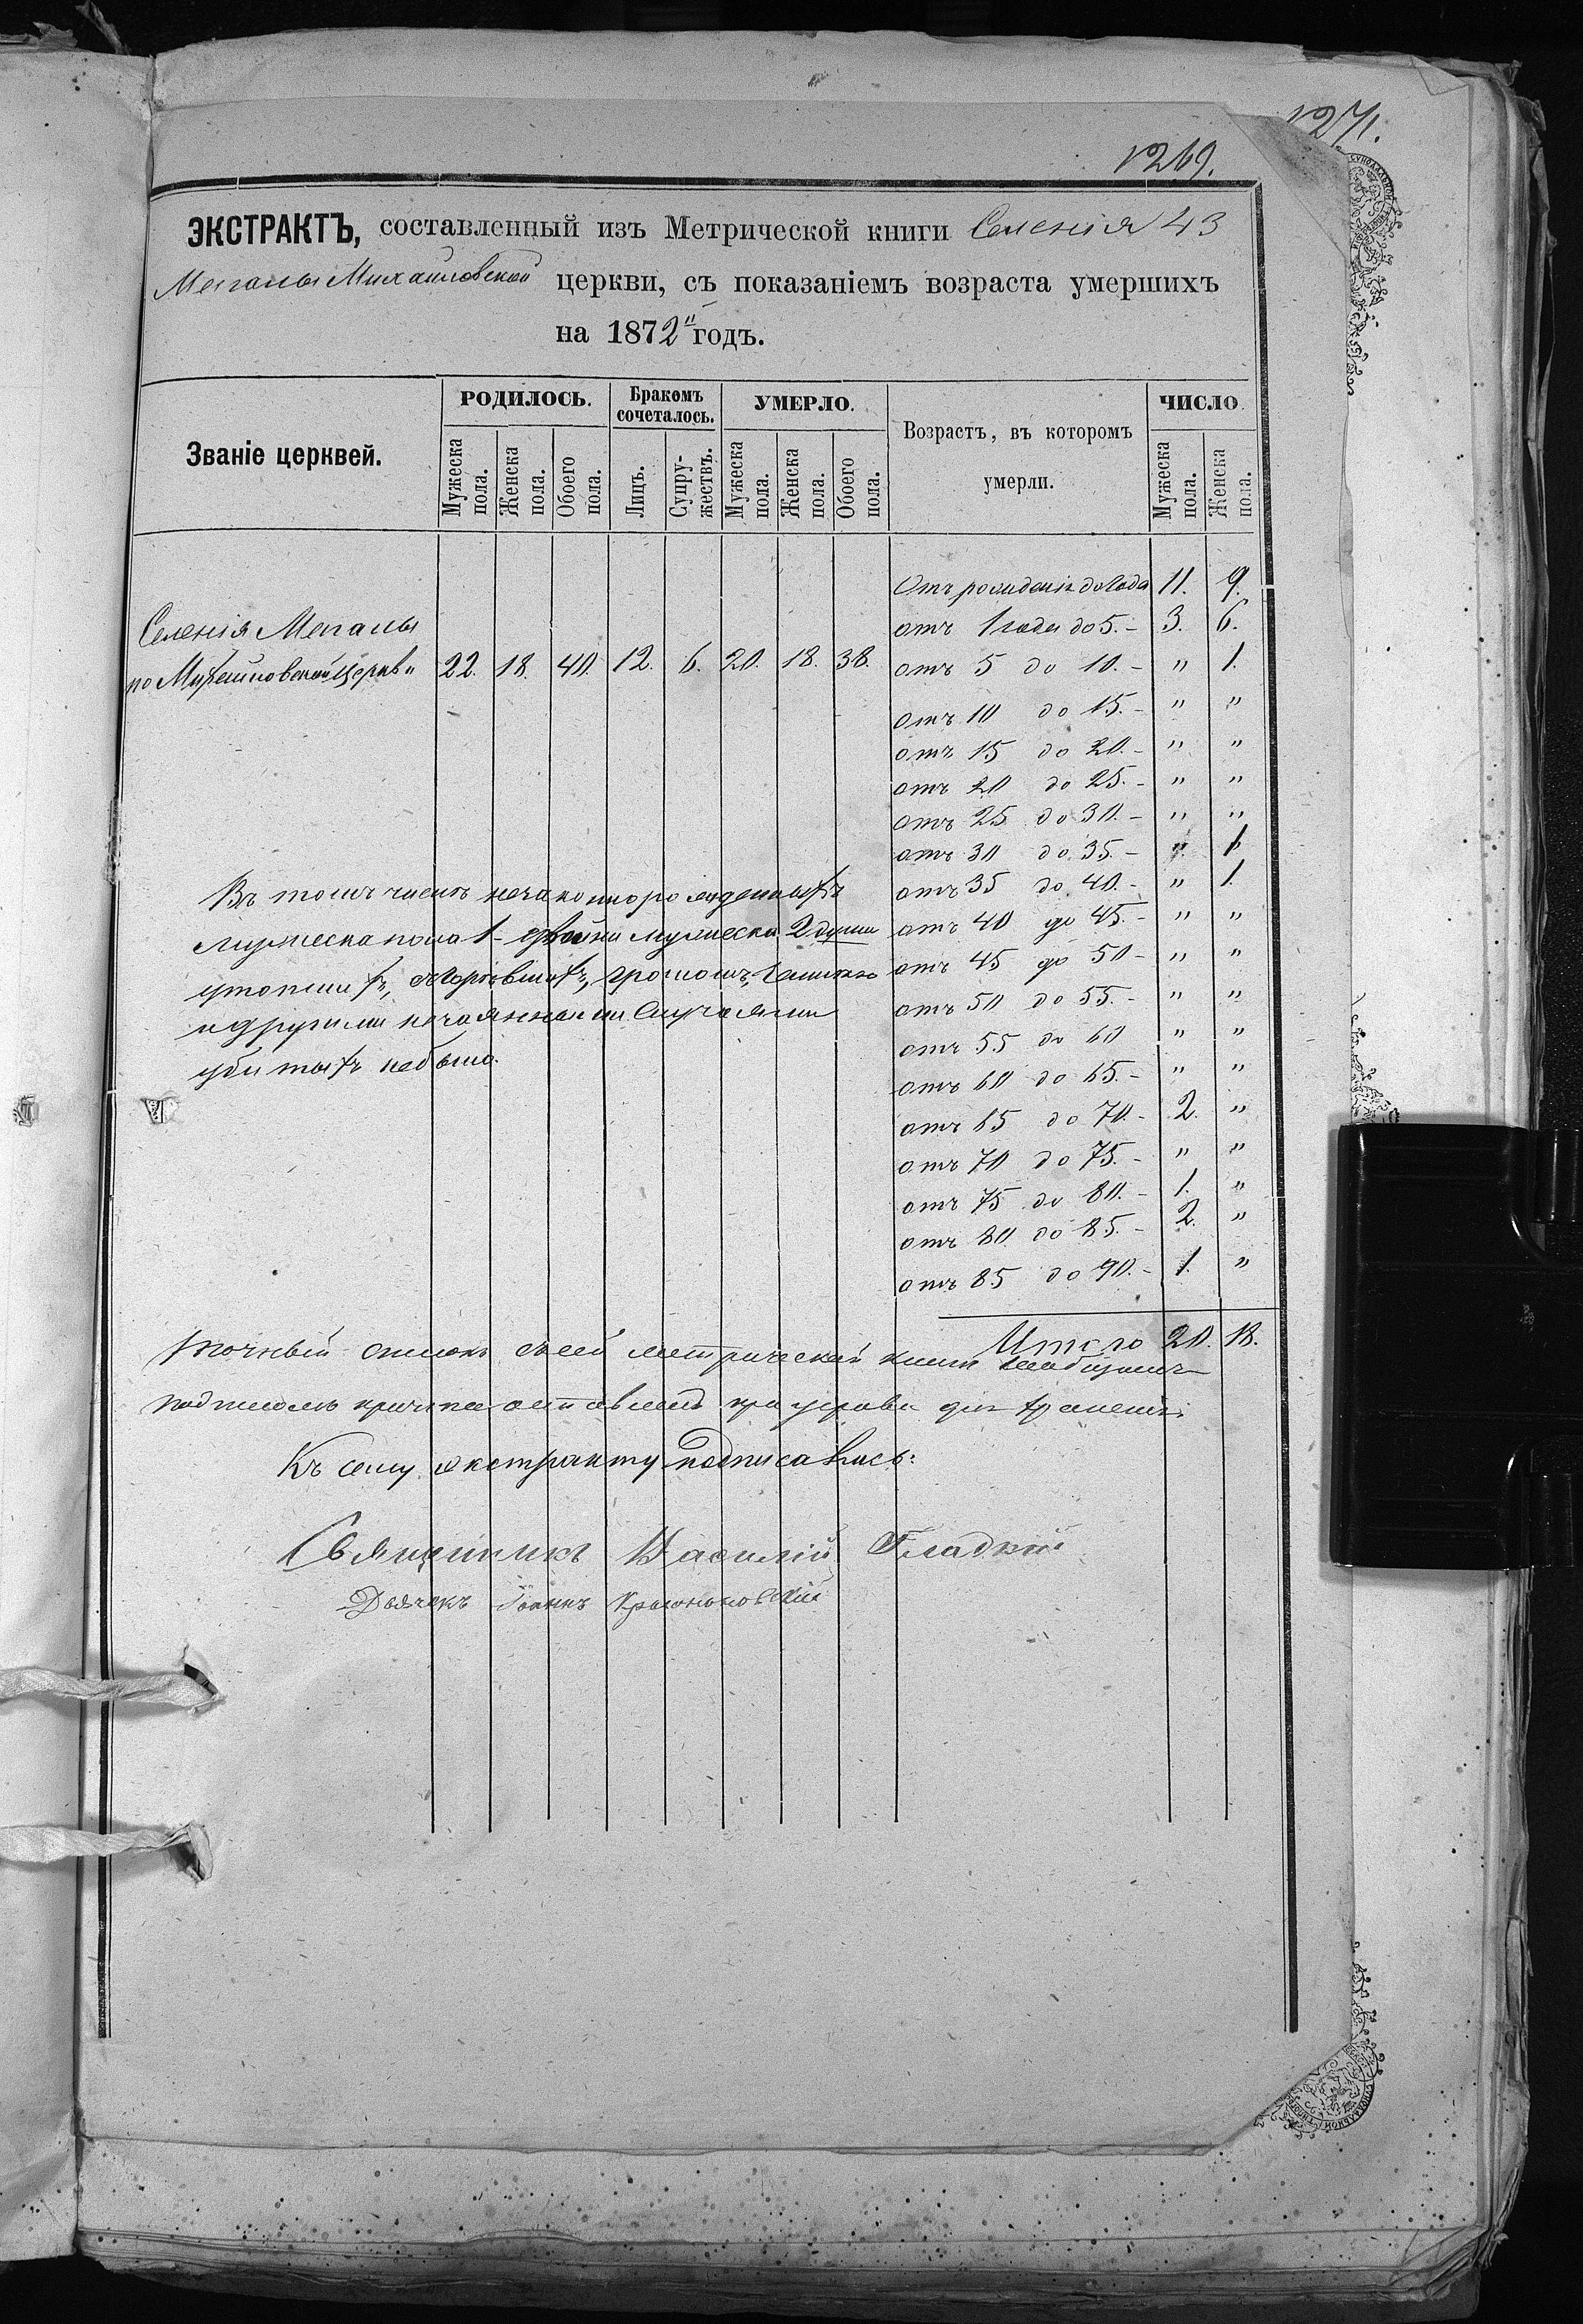 1271.
1269.
ЭКСТРАКТЪ, составленный изъ Метрической книги Селенія 43
Меганы Михаиловской церкви, съ показаніемъ возраста умершихъ
на 1872 годъ.
Званіе церквей.
РОДИЛОСЬ.
Бракомъ сочеталось.
УМЕРЛО.
Возрастъ, въ которомъ умерли.
ЧИСЛО
Мужеска пола.
Женска пола.
Обоего пола.
Лицъ.
Супружествъ.
Мужеска пола.
Женска пола.
Обоего пола.
Мужеска пола.
Женска пола.
Отъ рожденія до года 11. 9.
Селенія Меганы
отъ 1 года до 5. – 3. 6.
по Михайловской церкви 22. 18. 40. 12. 6. 20. 18. 38. отъ 5 до 10. – " 1.
отъ 10 до 15. – " "
отъ 15 до 20. – " "
отъ 20 до 25. – " "
отъ 25 до 30. – " "
отъ 30 до 35. – " 1.
отъ 35 до 40. – " 1.
отъ 40 до 45. – " "
отъ 45 до 50 – " "
отъ 50 до 55. – " "
отъ 55 до 60 " "
отъ 60 до 65. – " "
отъ 65 до 70. – 2. "
отъ 70 до 75. – " "
отъ 75 до 80. – 1. "
отъ 80 до 85. – 2. "
отъ 85 до 90. – 1. "
Въ томъ числѣ незаконнорожденныхъ
мужеска пола 1 – двойни мужеска 2 души
утопшихъ, сгорѣвшихъ, громомъ,
и другими нечаянными случаями
убитыхъ небыло.
Итого 20. 18.
Точный списокъ сей метрической книги за общимъ
подписомъ причта оставленъ при церкви для храненія
Къ сему экстракту подписались:
Священникъ Василій Гладкій
Дьячекъ Іоаннъ